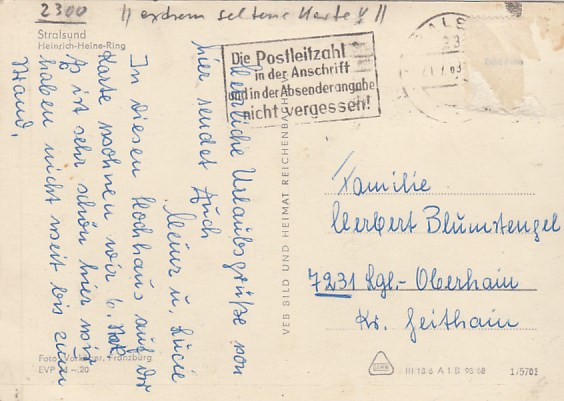 2300 || extrem seltene Karte! ||
Stralsund
Heinrich-Heine-Ring
Die Postleitzahl
in der Anschrift
und in der Absenderangabe
nicht vergessen!
Herzliche Urlaubsgrüße von
hier sendet Euch
Heinz u. Lucie
In diesem Hochhaus auf der
Karte wohnen wir 6. Stck
Es ist sehr schön hier wir
haben nicht weit bis zum
Strand.
VEB BILD UND HEIMAT REICHENBACH
Familie
Herbert Blumstengel
7231 Lgl.-Oberhain
Kr. Geithain
Foto: Franzburg
EVP –.20
III 18 6 A 1 B 98 68
1/5703